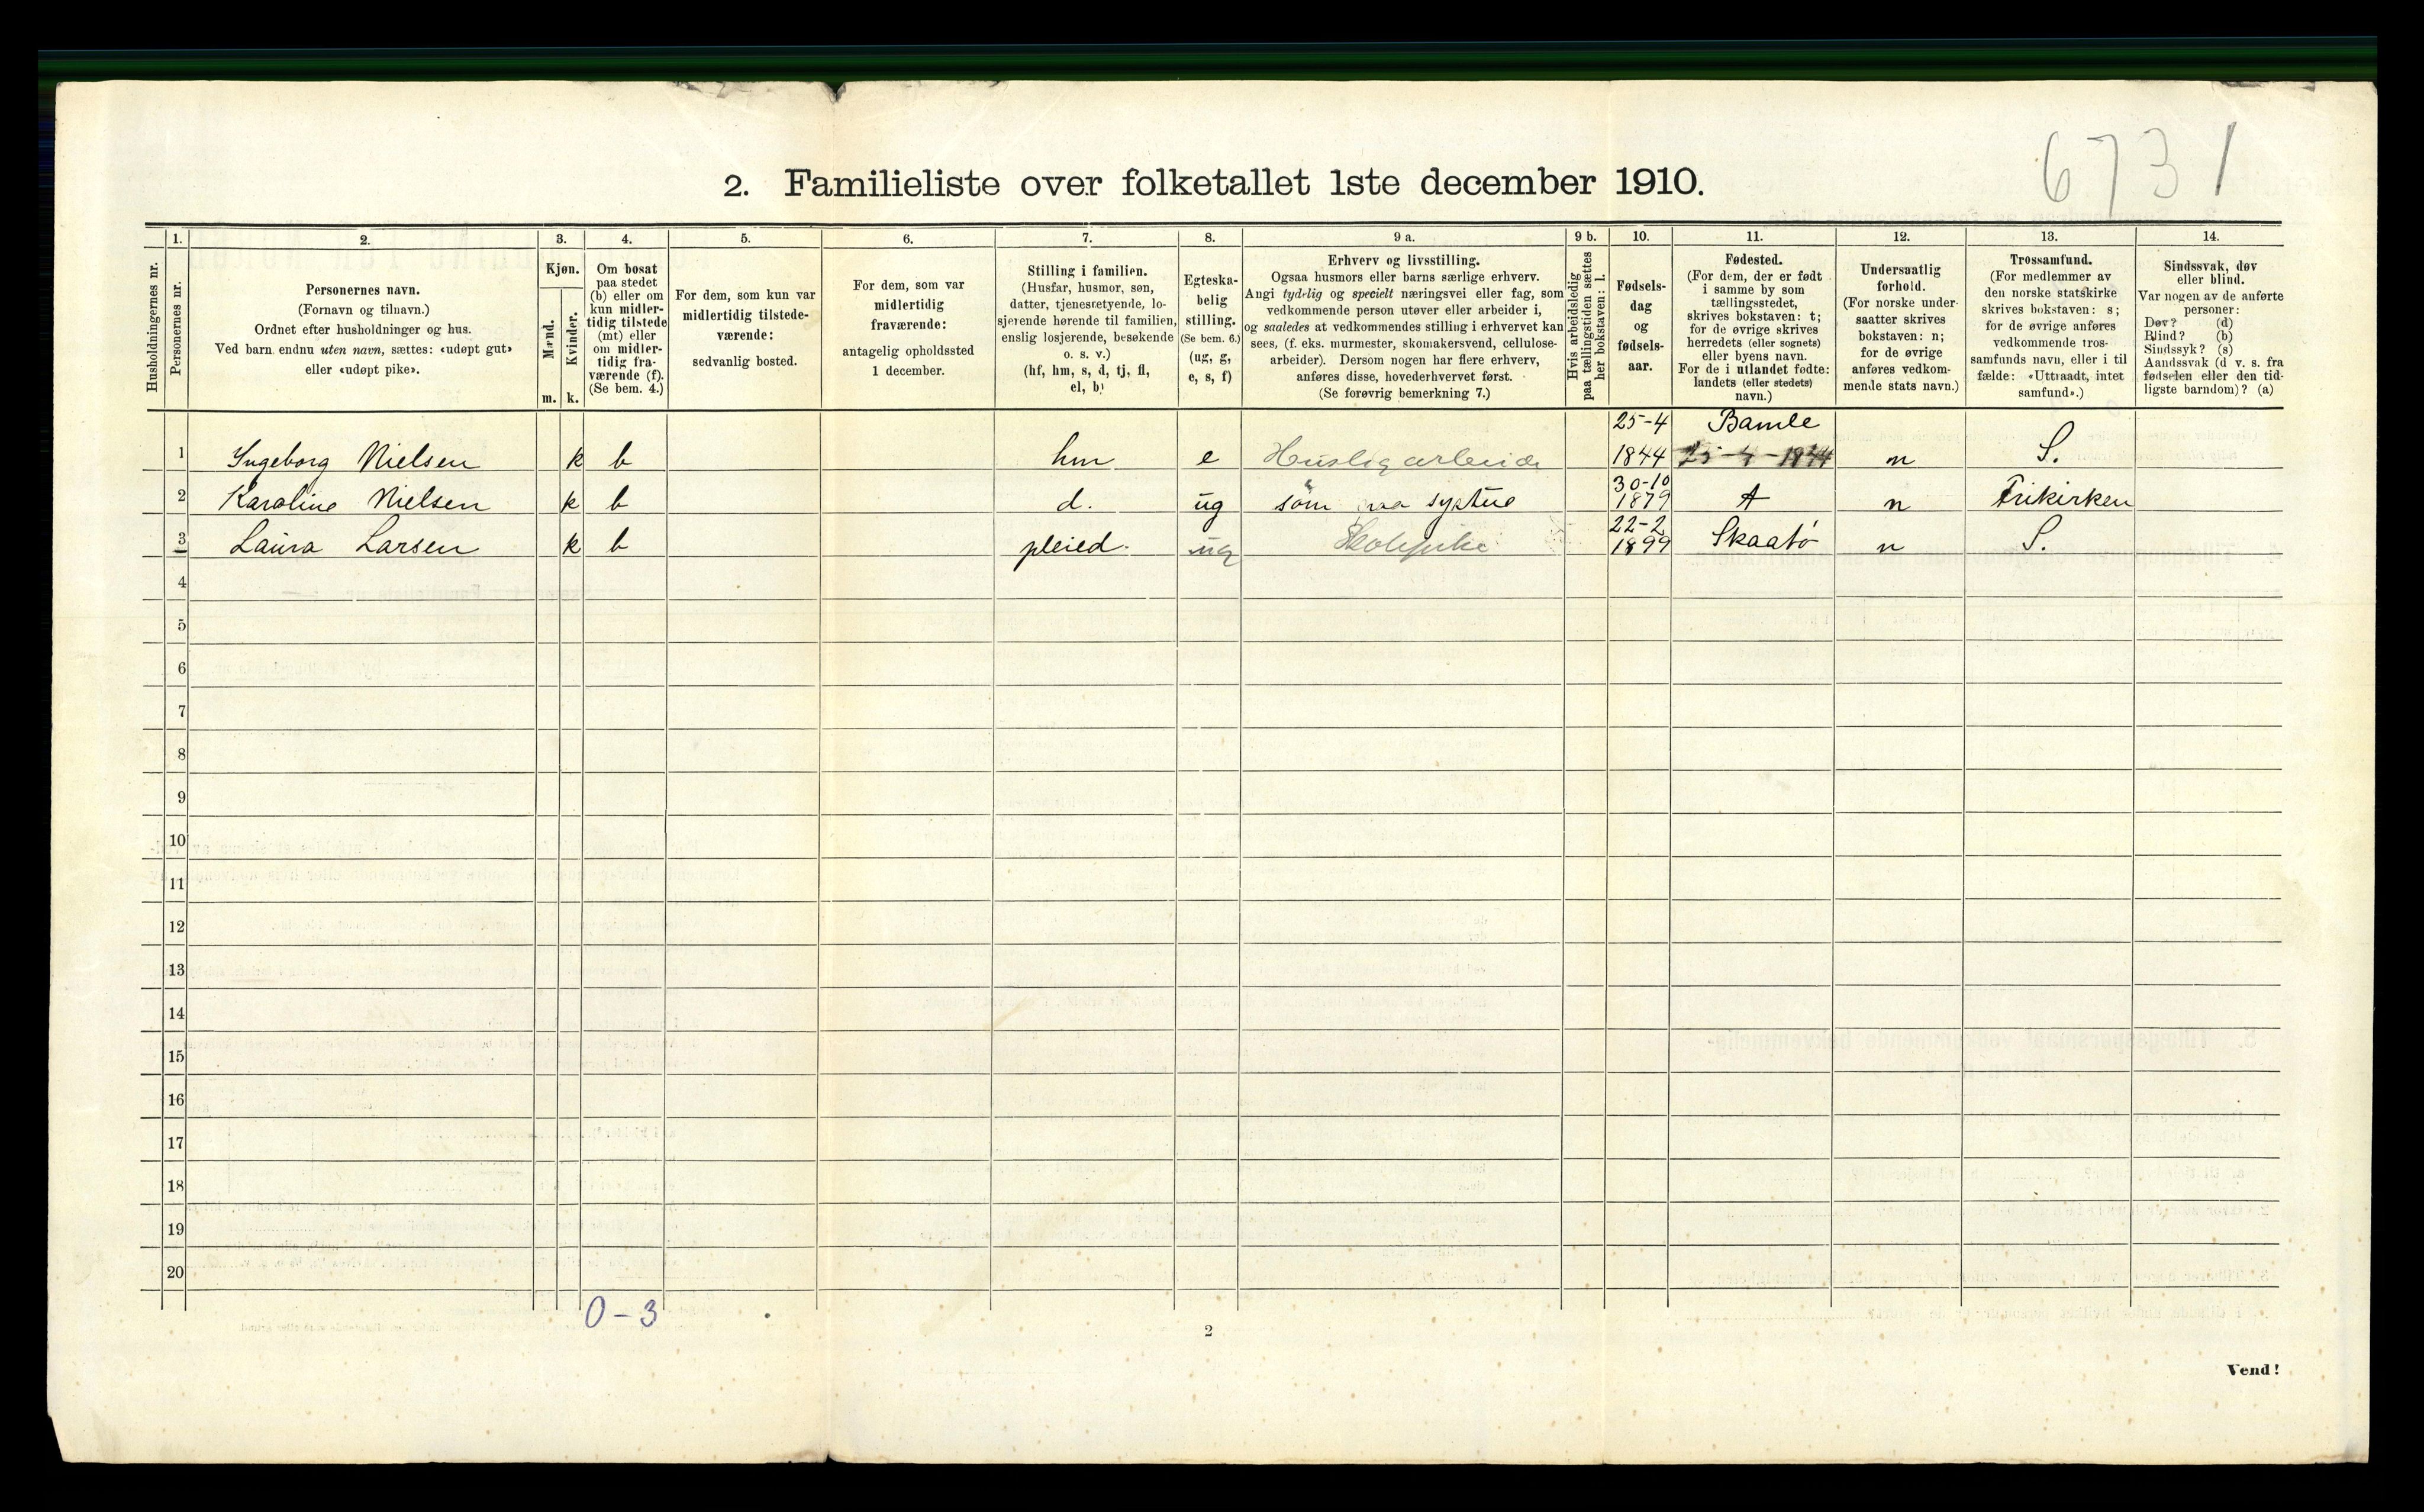 6731
2. Familieliste over folketallet 1ste december 1910.
1. 2. 3. 4. 5. 6. 7. 8. 9 a. 9 b. 10. 11. 12. 13. 14.
Husholdningernes nr.
Personernes nr.
Personernes navn.
(Fornavn og tilnavn.)
Ordnet efter husholdninger og hus.
Ved barn endnu uten navn, sættes: «udøpt gut»
eller «udøpt pike».
Kjøn.
Mænd.
Kvinder.
m. k.
Om bosat
paa stedet
(b) eller om
kun midler-
tidig tilstede
(mt) eller
om midler-
tidig fra-
værende (f).
(Se bem. 4.)
For dem, som kun var
midlertidig tilstede-
værende:
sedvanlig bosted.
For dem, som var
midlertidig
fraværende:
antagelig opholdssted
1 december.
Stilling i familien.
(Husfar, husmor, søn,
datter, tjenestetyende, lo-
sjerende hørende til familien,
enslig losjerende, besøkende
o. s. v.)
(hf, hm, s, d, tj, fl,
el, b)
Egteska-
belig
stilling.
(Se bem. 6.)
(ug, g,
e, s, f)
Erhverv og livsstilling.
Ogsaa husmors eller barns særlige erhverv.
Angi tydelig og specielt næringsvei eller fag, som
vedkommende person utøver eller arbeider i,
og saaledes at vedkommendes stilling i erhvervet kan
sees, (f. eks. murmester, skomakersvend, cellulose-
arbeider). Dersom nogen har flere erhverv,
anføres disse, hovederhvervet først.
(Se forøvrig bemerkning 7.)
Hvis arbeidsledig
paa tællingstiden sættes
her bokstaven: l.
Fødsels-
dag
og
fødsels-
aar.
Fødested.
(For dem, der er født
i samme by som
tællingsstedet,
skrives bokstaven: t;
for de øvrige skrives
herredets (eller sognets)
eller byens navn.
For de i utlandet fødte:
landets (eller stedets)
navn.)
Undersaatlig
forhold.
(For norske under-
saatter skrives
bokstaven: n;
for de øvrige
anføres vedkom-
mende stats navn.)
Trossamfund.
(For medlemmer av
den norske statskirke
skrives bokstaven: s;
for de øvrige anføres
vedkommende tros-
samfunds navn, eller i til
fælde: «Uttraadt, intet
samfund».)
Sindssvak, døv
eller blind.
Var nogen av de anførte
personer:
Døv? (d)
Blind? (b)
Sindssyk? (s)
Aandssvak (d v. s. fra
fødselen eller den tid-
ligste barndom)? (a)
1 Ingeborg Nielsen k b hm e Huslig arbeide 25-4 1844 Bamle 25-4-1844 n S.
2 Karoline Nielsen k b d. ug søm paa systue 30-10 1879 t n Frikirken
3 Laura Larsen k b pleied. ug Skolepike 22-2 1899 Skaatø n S.
4
5
6
7
8
9
10
11
12
13
14
15
16
17
18
19
20
0-3
2
Vend!